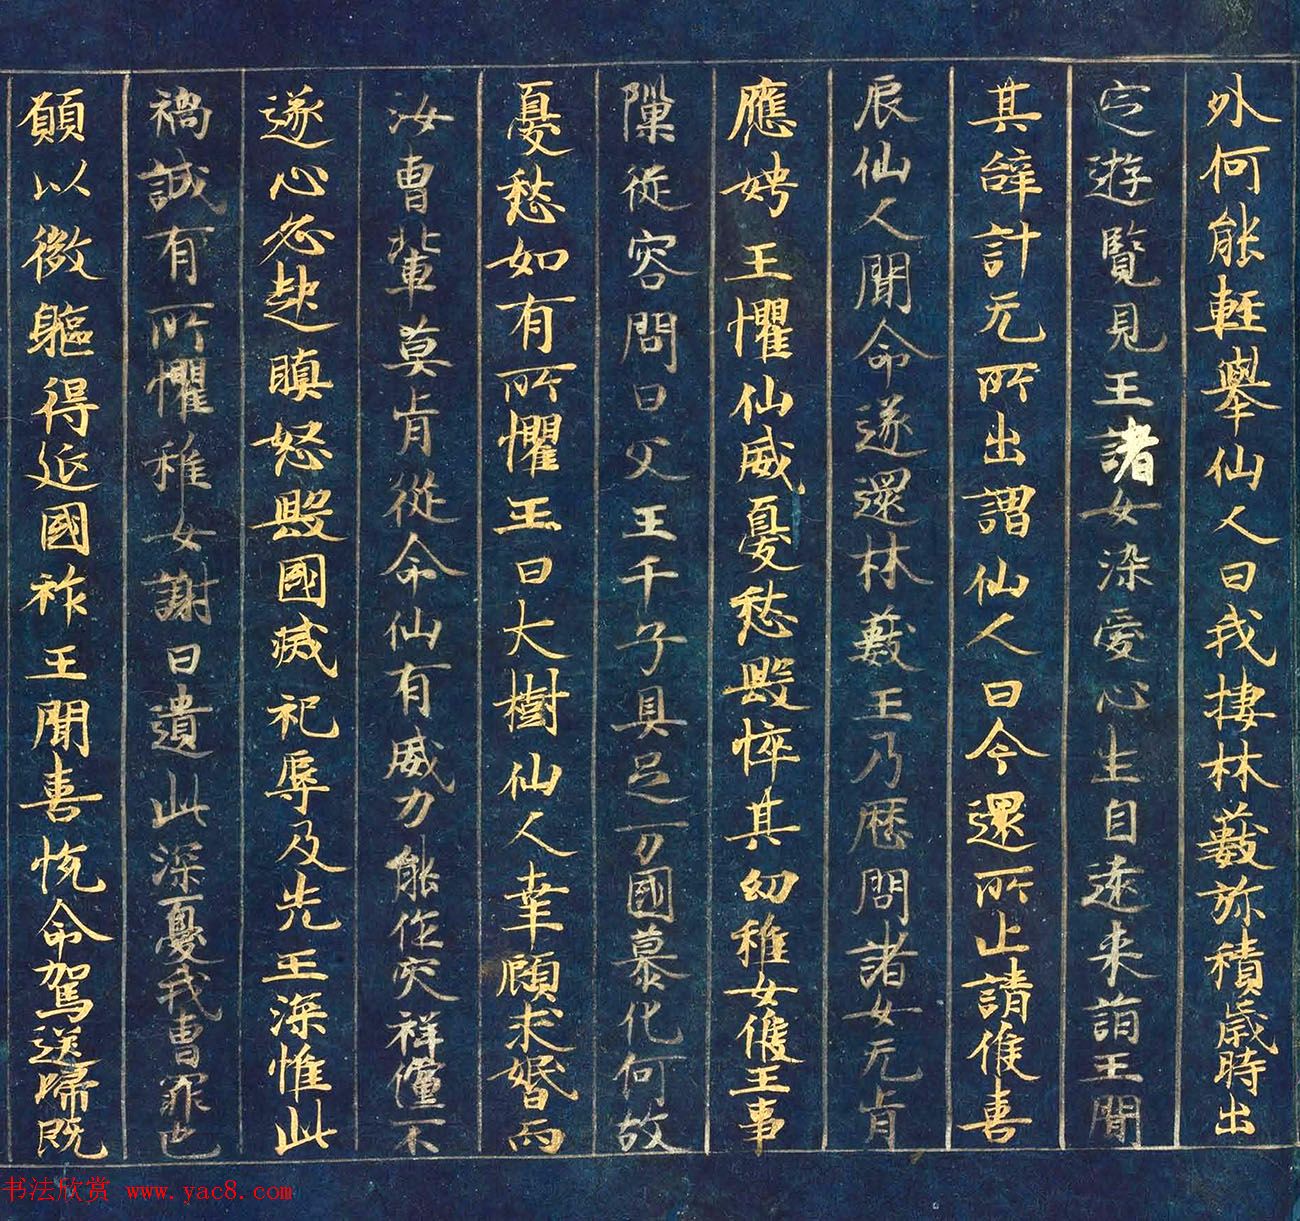 外何能輕舉仙人曰我捿林藪弥積歲時出
定遊覽見王諸女染愛心生自遠来請王聞
其辞計无所出謂仙人曰今還所止請俟嘉
辰仙人聞命遂還林藪王乃歷問諸女无肯
應娉王懼仙威憂愁毀悴其幼稚女俟王事
隟從容問曰父王千子具足万國慕化何故
憂愁如有所懼王曰大樹仙人幸顧求婚而
汝曹輩莫肯從命仙有威力能作灾祥儻不
遂心必起瞋怒毀國滅祀辱及先王深惟此
禍誠有所懼稚女謝曰遺此深憂我曹罪也
願以微軀得延國祚王聞喜恱命駕送歸既
书法欣赏 www.yac8.com